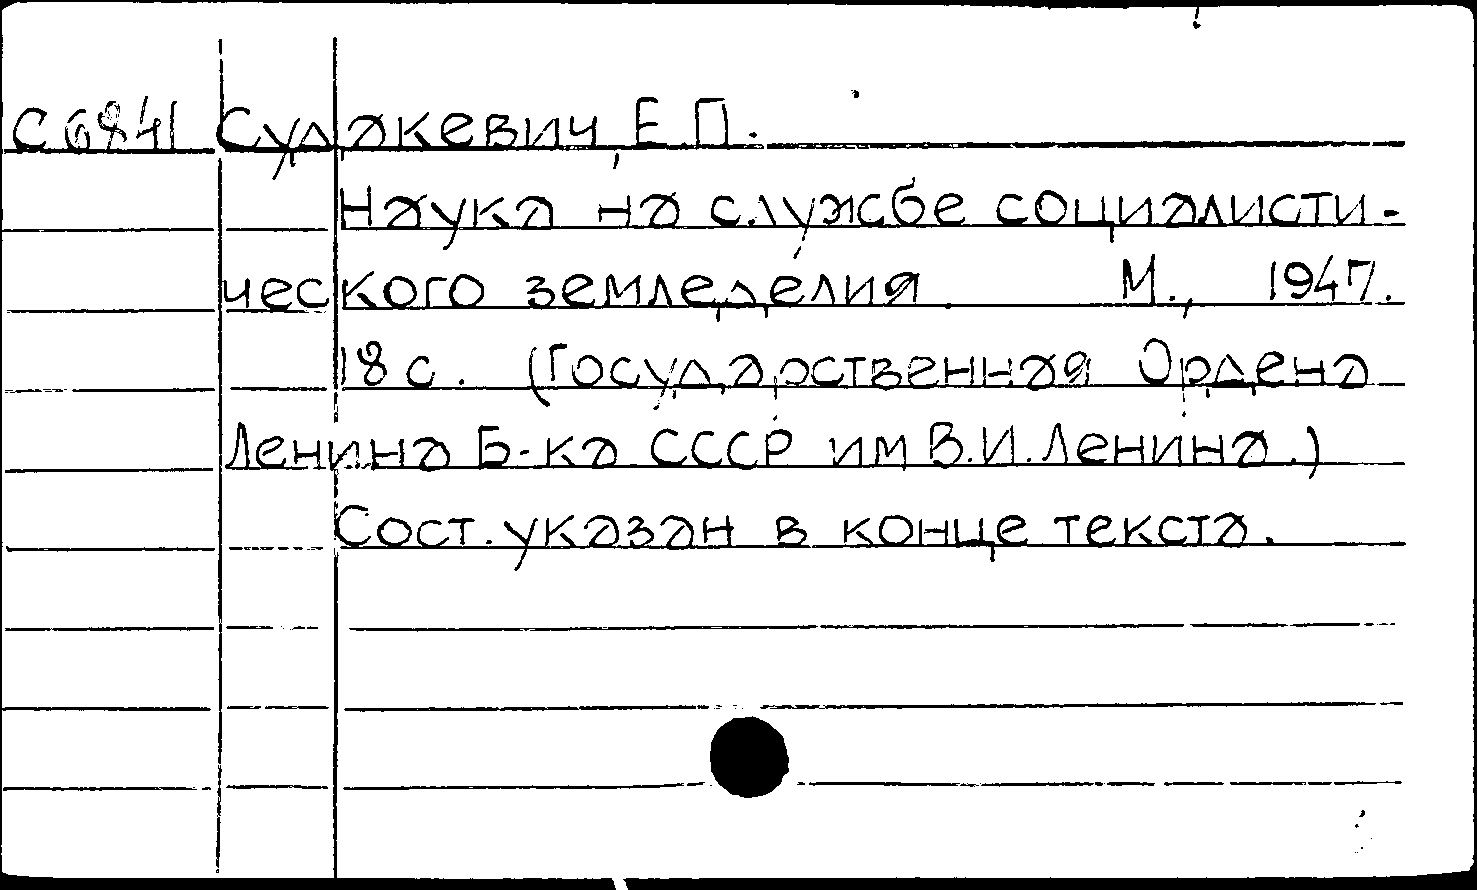 С6841 Судакевич, Е.П.
Наука на службе социалисти-
ческого земледелия. М., 1947.
18 с. (Государственная Ордена
Ленина Б-ка СССР им В.И.Ленина.)
Сост. указан в конце текста.